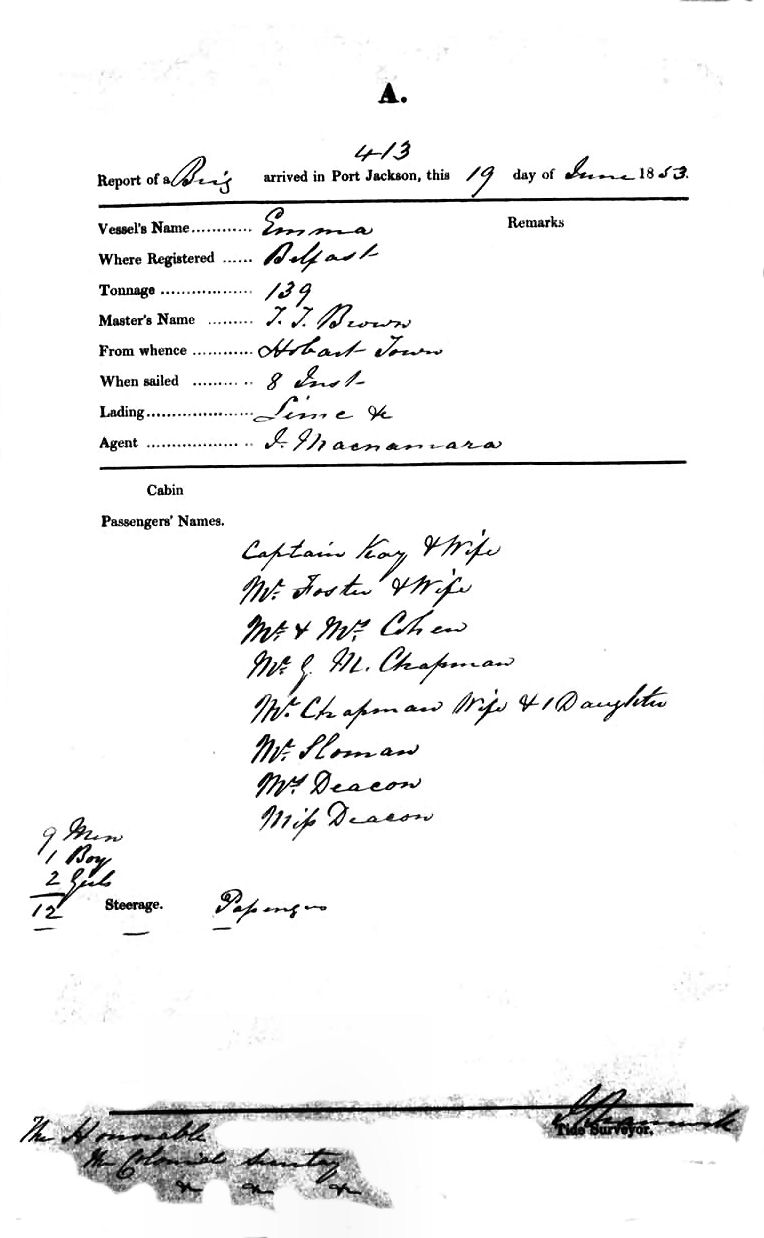 A.
413
Report of a Brig arrived in Port Jackson, this 19 day of June 1853.
Vessel's Name............ Emma Remarks
Where Registered ...... Belfast
Tonnage ................. 139
Master's Name ......... T. T. Brown
From whence ............ Hobart Town
When sailed ........... 8 Inst
Lading..................... Lime &c
Agent ..................... I. Macnamara
Cabin
Passengers' Names.
Captain Kay & Wife
Mr. Foster & Wife
Mr. & Mrs. Cohen
Mr. G. M. Chapman
Mr. Chapman Wife & 1 Daughter
Mr. Sloman
Mrs Deacon
Miss Deacon
9 Men
1 Boy
2 Girls
12 Steerage. Passengers
Tide Surveyor.
The Honorable
The Colonial Secretary
&c &c &c